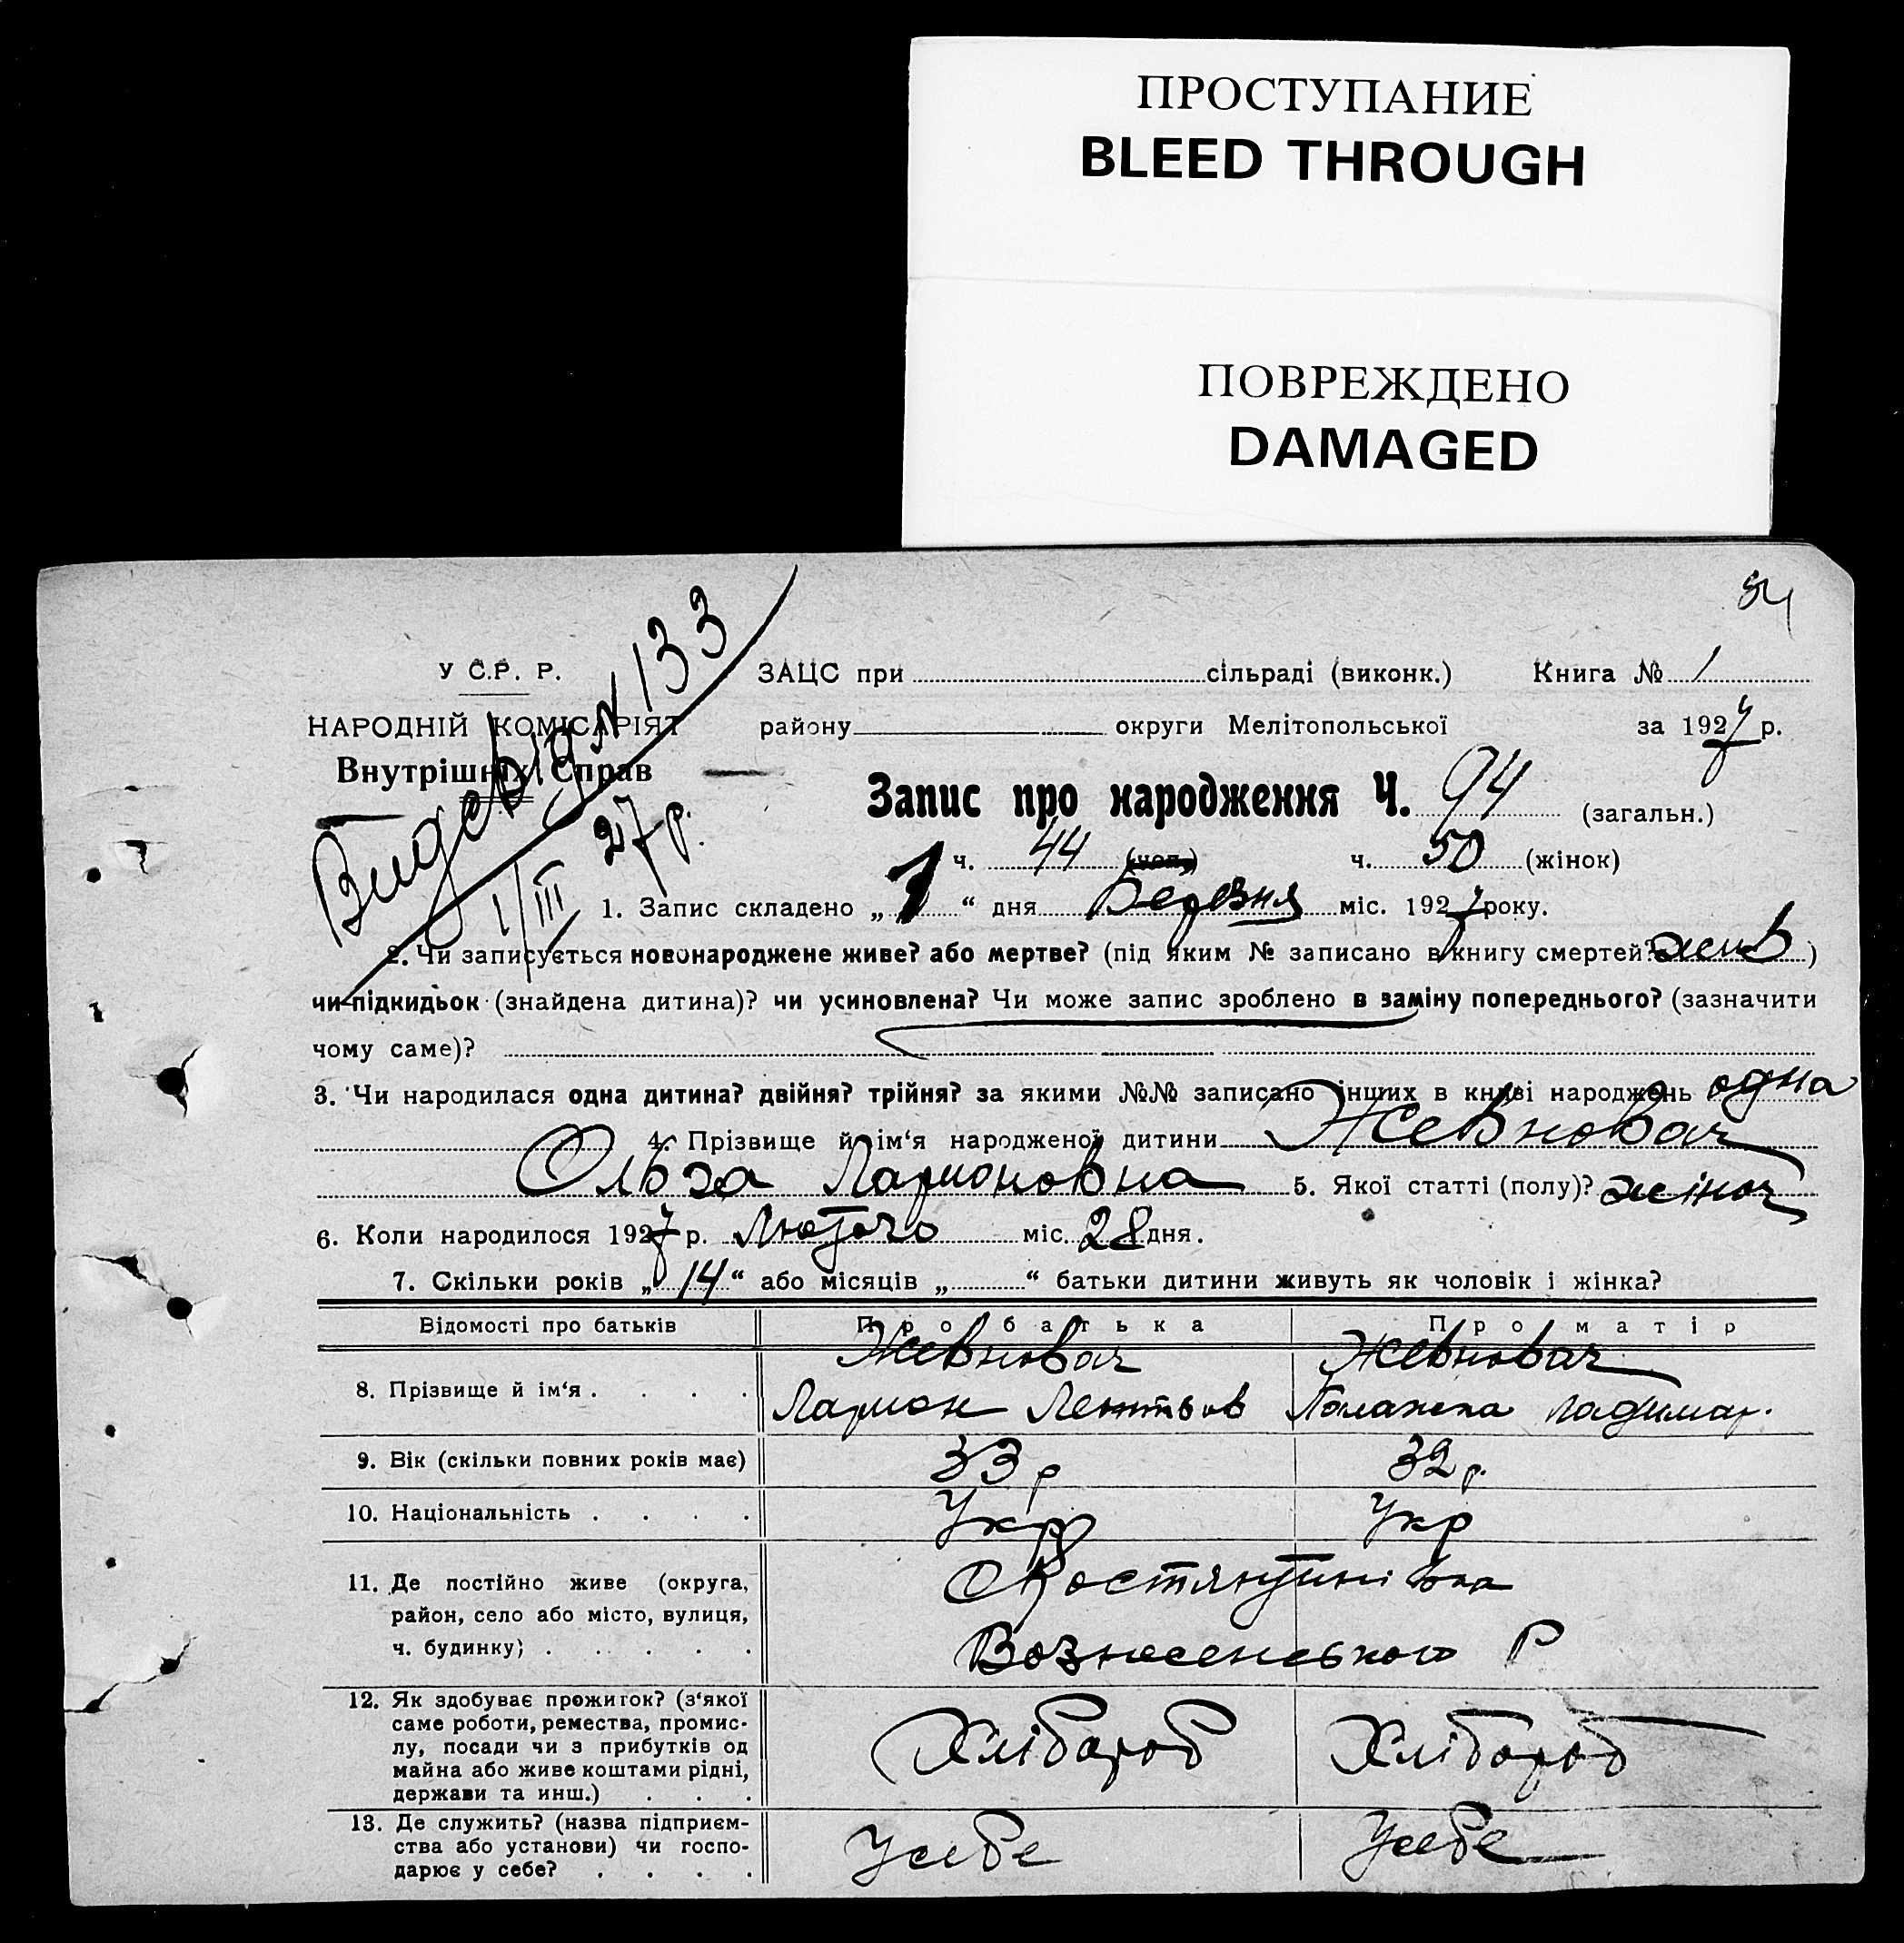 ПРОСТУПАНИЕ
BLEED THROUGH
ПОВРЕЖДЕНО
DAMAGED
54
У С.Р. Р.
НАРОДНІЙ КОМІСАРІЯТ
Внутрішніх Справ
№ 133
1/III 27 р.
ЗАЦС при сільраді (виконк.) Книга № 1
району округи Мелітопольської за 1927 р.
Запис про народження Ч. 94 (загальн.)
ч. 44 (чол.) ч. 50 (жінок)
1. Запис складено „ 1 “ дня Березня міс. 1927 року.
2. Чи записується новонароджене живе? або мертве? (під яким № записано в книгу смертей? жив )
чи підкидьок (знайдена дитина)? чи усиновлена? Чи може запис зроблено в заміну попереднього? (зазначити
чому саме)?
3. Чи народилася одна дитина? двійня? трійня? за якими №№ записано інших в книзі народжень одна
4. Прізвище й ім‘я народженої дитини Жевновач
Ольга Ларионовна 5. Якої статті (полу)? жіноч
6. Коли народилося 1927 р. Лютого міс. 28 дня.
7. Скільки років „ 14 “ або місяців „ “ батьки дитини живуть як чоловік і жінка?
Відомості про батьків Про батька Про матір
Жевновач Жевновач
8. Прізвище й ім‘я . . . . Ларион Леонтьов
9. Вік (скільки повних років має) 33 р 32 р.
10. Національність . . . . Укр Укр
11. Де постійно живе (округа,
район, село або місто, вулиця,
ч. будинку) . . . . .
Костянтинівка
Вознесенського Р
12. Як здобуває прожиток? (з‘якої
саме роботи, ремества, промис-
лу, посади чи з прибутків од
майна або живе коштами рідні,
держави та инш.) . . .
Хлібороб Хлібороб
13. Де служить? (назва підприєм-
ства або установи) чи госпо-
дарює у себе? . . . .
Усебе Усебе